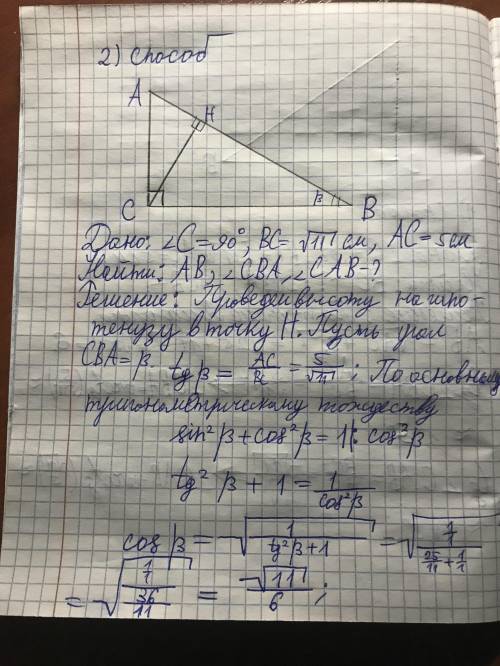 2) способ
A
H
C
β
B
Дано: ∠C=90°, BC= √11 см, AC=5 см
Найти: AB, ∠CBA, ∠CAB-?
Решение: Проведём высоту на гипо-
тенузу в точку H. Пусть угол
CBA=β.
tgβ = AC/BC = 5/√11; По основным
тригонометрическому тождеству
sin²β+cos²β=1 |: cos²β
tg²β + 1 = 1/cos²β
cosβ = √(1/(tg²β+1)) = √((1/1)/(25/11+1/1))
= √((1/1)/(36/11)) = √11/6;